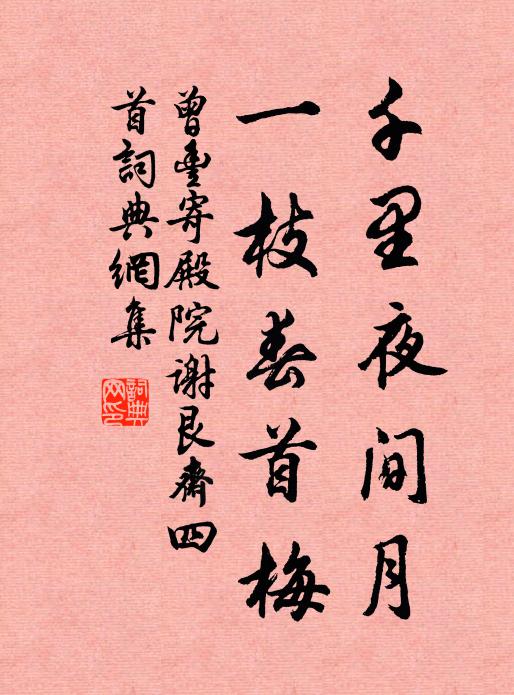 千里夜间月
一枝春首梅
曾豊寄殿院谢艮齋四
首詞典網集
詞典
网印